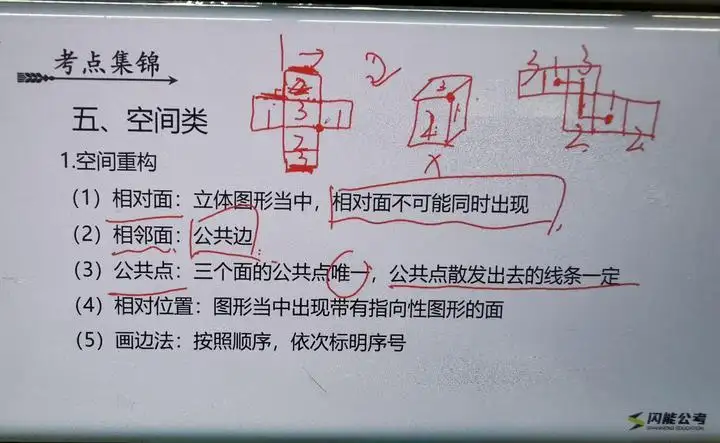 考点集锦
五、空间类
1.空间重构
（1）相对面：立体图形当中，相对面不可能同时出现
（2）相邻面：公共边
（3）公共点：三个面的公共点唯一，公共点散发出去的线条一定
（4）相对位置：图形当中出现带有指向性图形的面
（5）画边法：按照顺序，依次标明序号
2
1 3 1
2
3
3
2 1
3 3
1
1
2 2
闪能公考